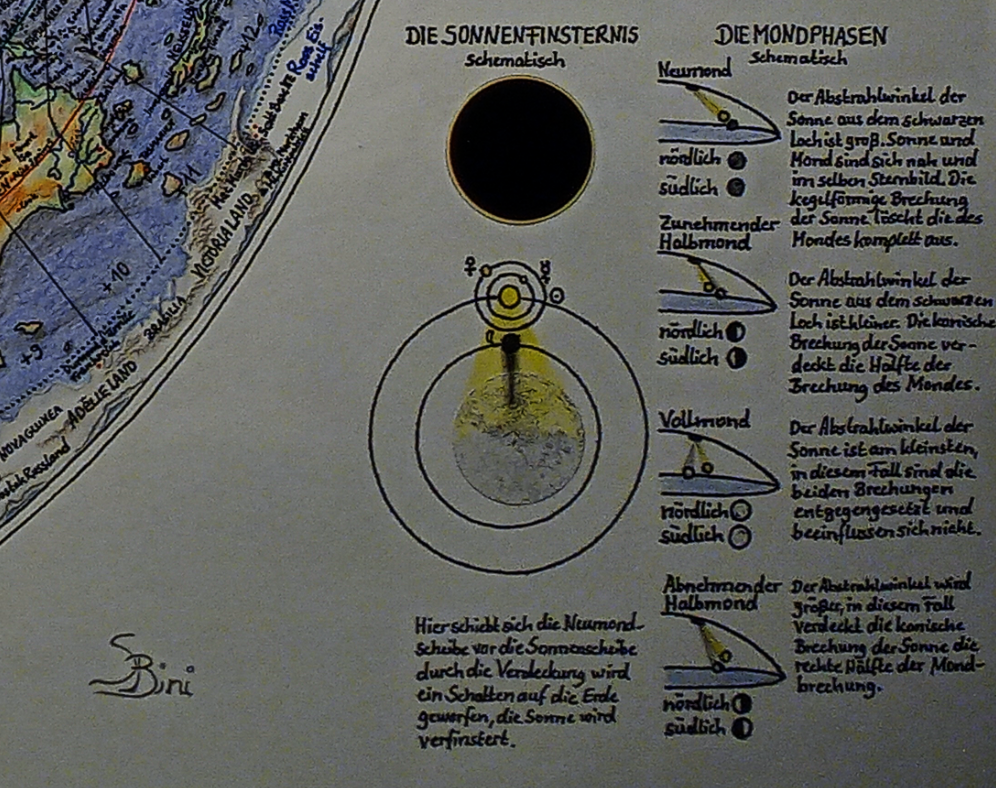 DIE SONNENFINSTERNIS
schematisch
Hier schiebt sich die Neumond-
scheibe vor die Sonnenscheibe
durch die Verdeckung wird
ein Schatten auf die Erde
geworfen, die Sonne wird
verfinstert.
DIE MONDPHASEN
schematisch
Neumond
nördlich
südlich
Der Abstrahlwinkel der
Sonne aus dem schwarzen
Loch ist groß. Sonne und
Mond sind sich nah und
im selben Sternbild. Die
kegelförmige Brechung
der Sonne löscht die des
Mondes komplett aus.
Zunehmender
Halbmond
nördlich
südlich
Der Abstrahlwinkel der
Sonne aus dem schwarzen
Loch ist kleiner. Die konische
Brechung der Sonne ver-
deckt die Hälfte der
Brechung des Mondes.
Vollmond
nördlich
südlich
Der Abstrahlwinkel der
Sonne ist am kleinsten,
in diesem Fall sind die
beiden Brechungen
entgegengesetzt und
beeinflussen sich nicht.
Abnehmender
Halbmond
nördlich
südlich
Der Abstrahlwinkel wird
größer, in diesem Fall
verdeckt die konische
Brechung der Sonne die
rechte Hälfte der Mond-
brechung.
+12
Ross Eis-
schelf
11
VICTORIA LAND
+10
BRASILIA
+9
ADÉLIE LAND
NOVAGUINEA
Russland
SBini